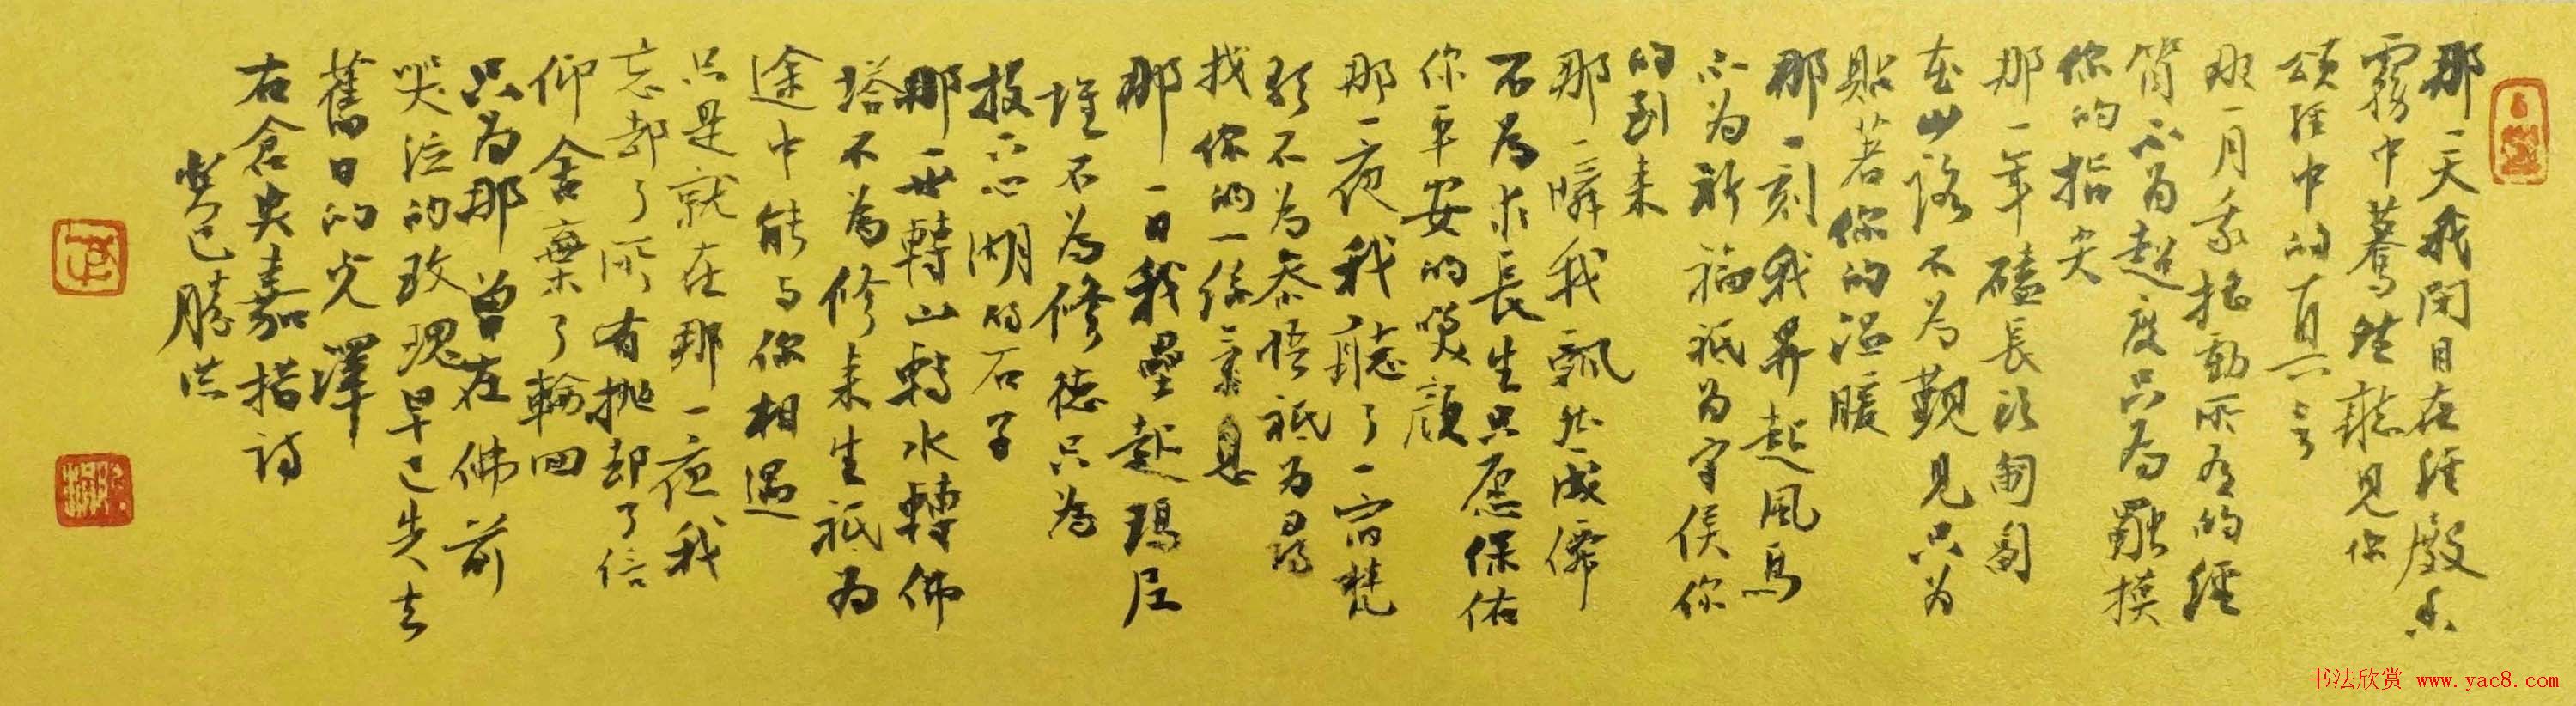 那一天我閉目在經殿香
霧中驀然聽見你
頌經中的真言
那一月我搖動所有的經
筒不為超度只為觸摸
你的指尖
那一年磕長頭匍匐
在山路不为覲見只为
貼著你的温暖
那一刻我昇起風馬
不为祈福祗为守侯你
的到来
那一瞬我飄然成僊
不为求長生只愿保佑
你平安的笑顔
那一夜我聽了一宿梵
歌不为参悟祗为尋
找你的一絲氣息
那一日我壘起瑪尼
堆不為修德只為
投下心湖的石子
那一世轉山轉水轉佛
塔不為修来生祗为
途中能与你相遇
只是就在那一夜我
忘却了所有抛却了信
仰舍棄了輪回
只为那曾在佛前
哭泣的玫瑰早已失去
舊日的光澤
右倉央嘉措詩
癸巳勝洪
书法欣赏 www.yac8.com